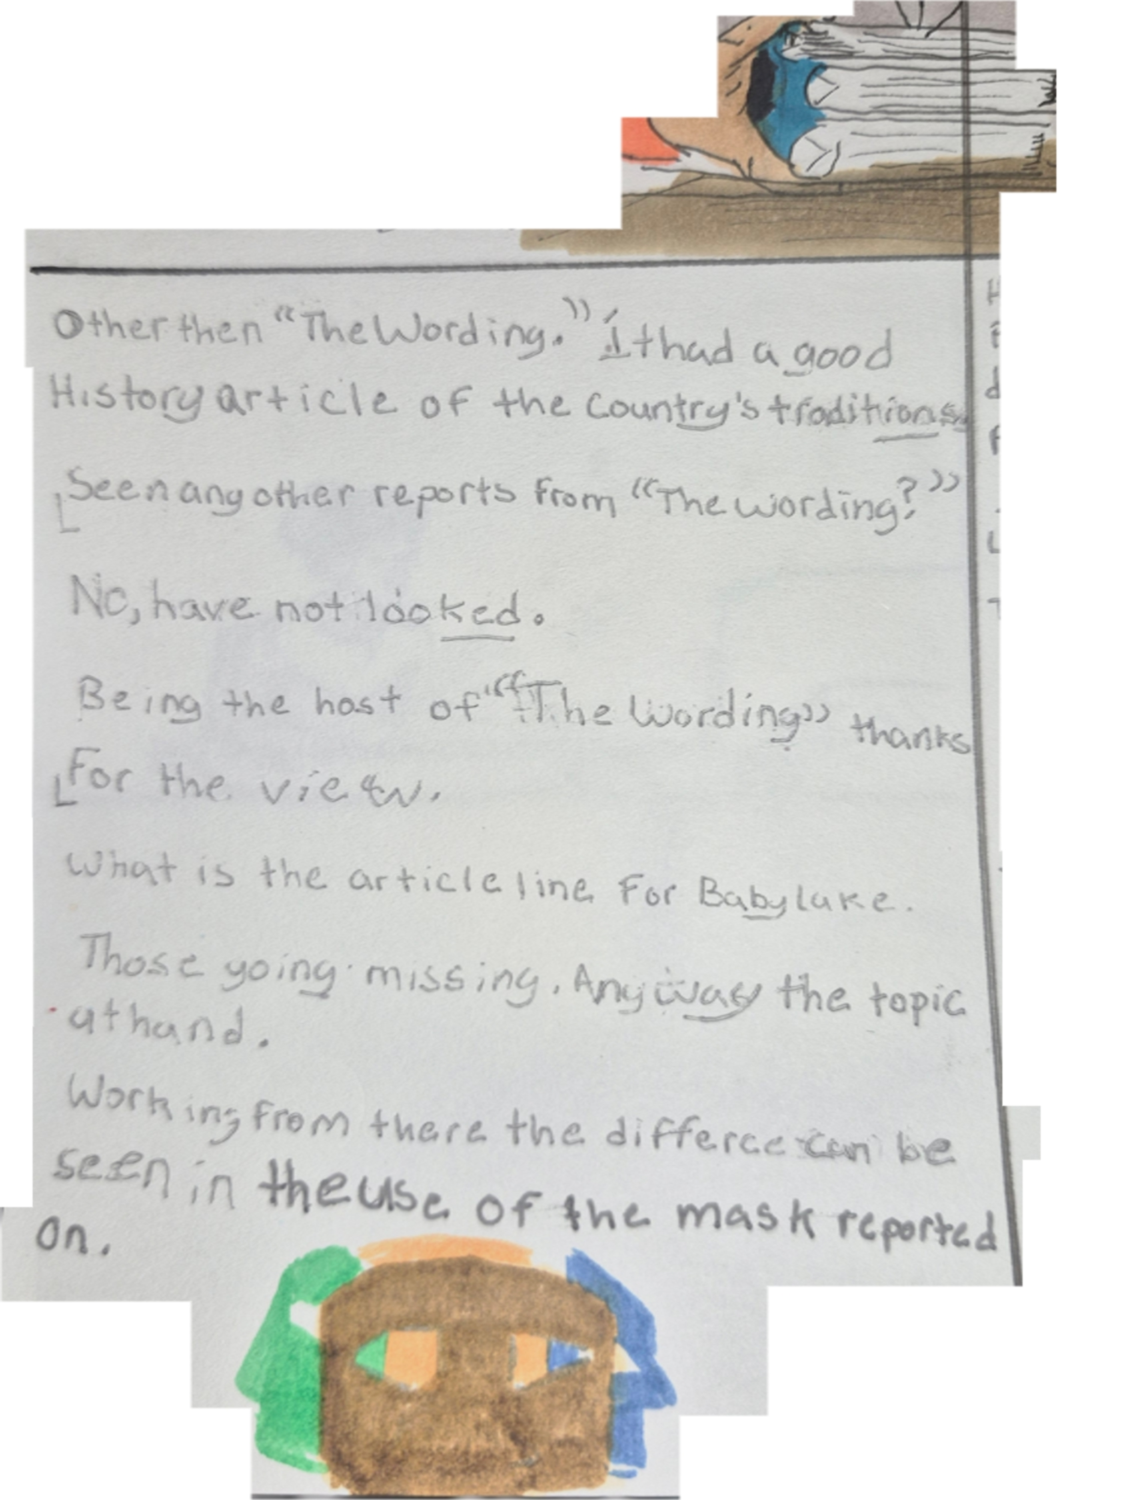 Other then "The Wording." It had a good
History article of the Country's traditions.
Seen any other reports from "The wording?"
No, have not looked.
Being the host of "The Wording" thanks
For the view.
What is the article line For Babylake.
Those going missing. Anyway the topic
at hand.
Working from there the differce can be
seen in the use of the mask reported
on.